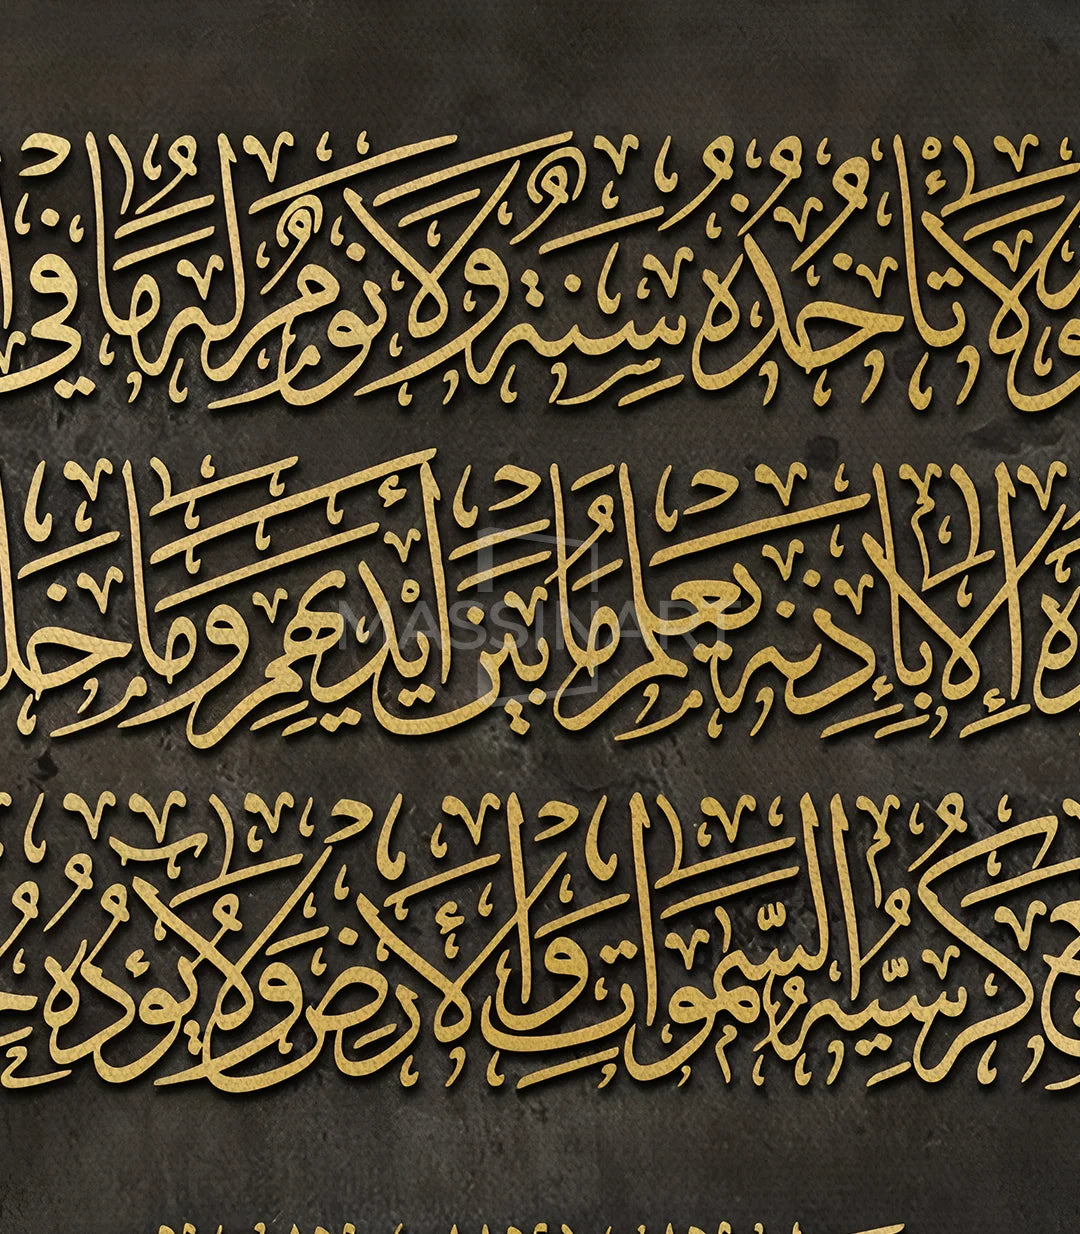 وَلَا تَأْخُذُهُ سِنَةٌ وَلَا نَوْمٌ لَهُ مَا فِي
إِلَّا بِإِذْنِهِ يَعْلَمُ مَا بَيْنَ أَيْدِيهِمْ وَمَا
كُرْسِيُّهُ السَّمٰوَاتِ وَالْأَرْضَ وَلَا يَؤُدُهُ
MASSINART